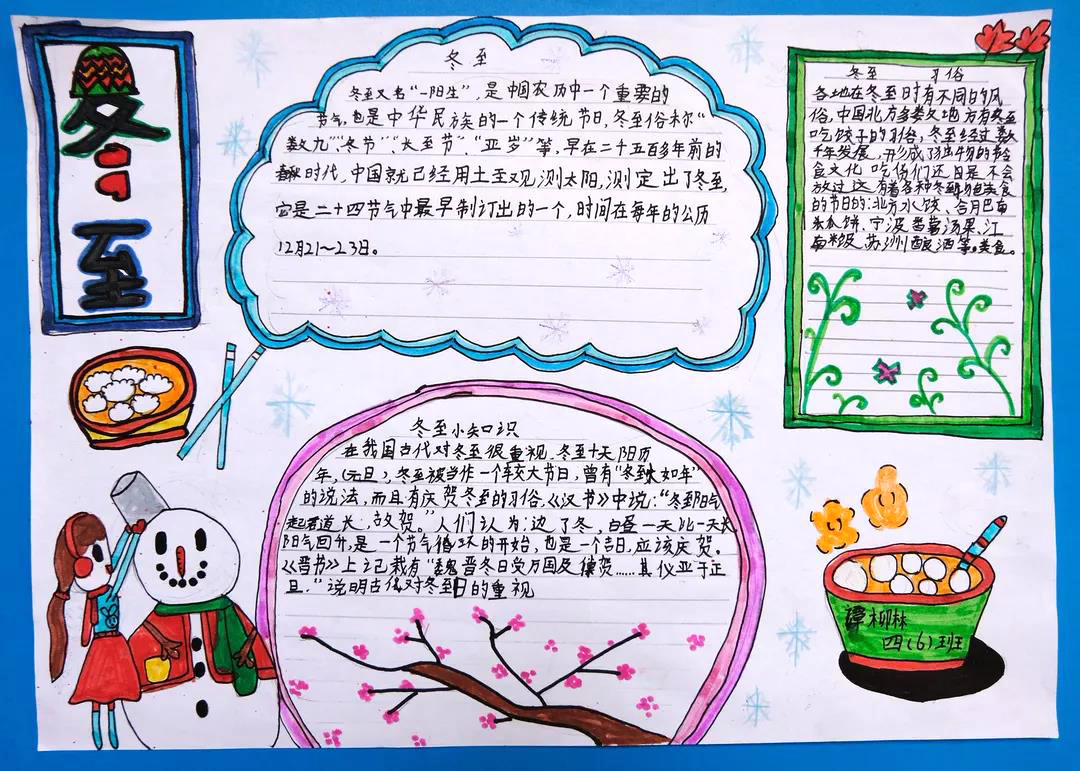 冬
至
冬至
冬至又名“一阳生”,是中国农历中一个重要的
节气,也是中华民族的一个传统节日,冬至俗称“
数九”、“冬节”、“长至节”、“亚岁”等,早在二十五百多年前的
春秋时代,中国就已经用土圭观测太阳,测定出了冬至,
它是二十四节气中最早制订出的一个,时间在每年的公历
12月21~23日。
冬至 习俗
各地在冬至时有不同的风
俗,中国北方多数地方有冬至
吃饺子的习俗,冬至经过数
千年发展,形成了独特的
食文化
的节日的:北方水饺、
南瓜饼、宁波番薯汤果、江
南米饭、苏州酿酒等。美食。
冬至小知识
在我国古代对冬至很重视,冬至十天阳历
年,(元旦),冬至被当作一个较大节日,曾有“冬至大如年”
的说法,而且有庆贺冬至的习俗,《汉书》中说:“冬至阳气
起君道长,故贺。”人们认为:过了冬,白昼一天比一天长
阳气回升,是一个节气循环的开始,也是一个吉日,应该庆贺。
《晋书》上记载有“魏晋冬日受万国及 贺……其仪亚于正
旦。”说明古代对冬至日的重视
谭柳林
四(6)班